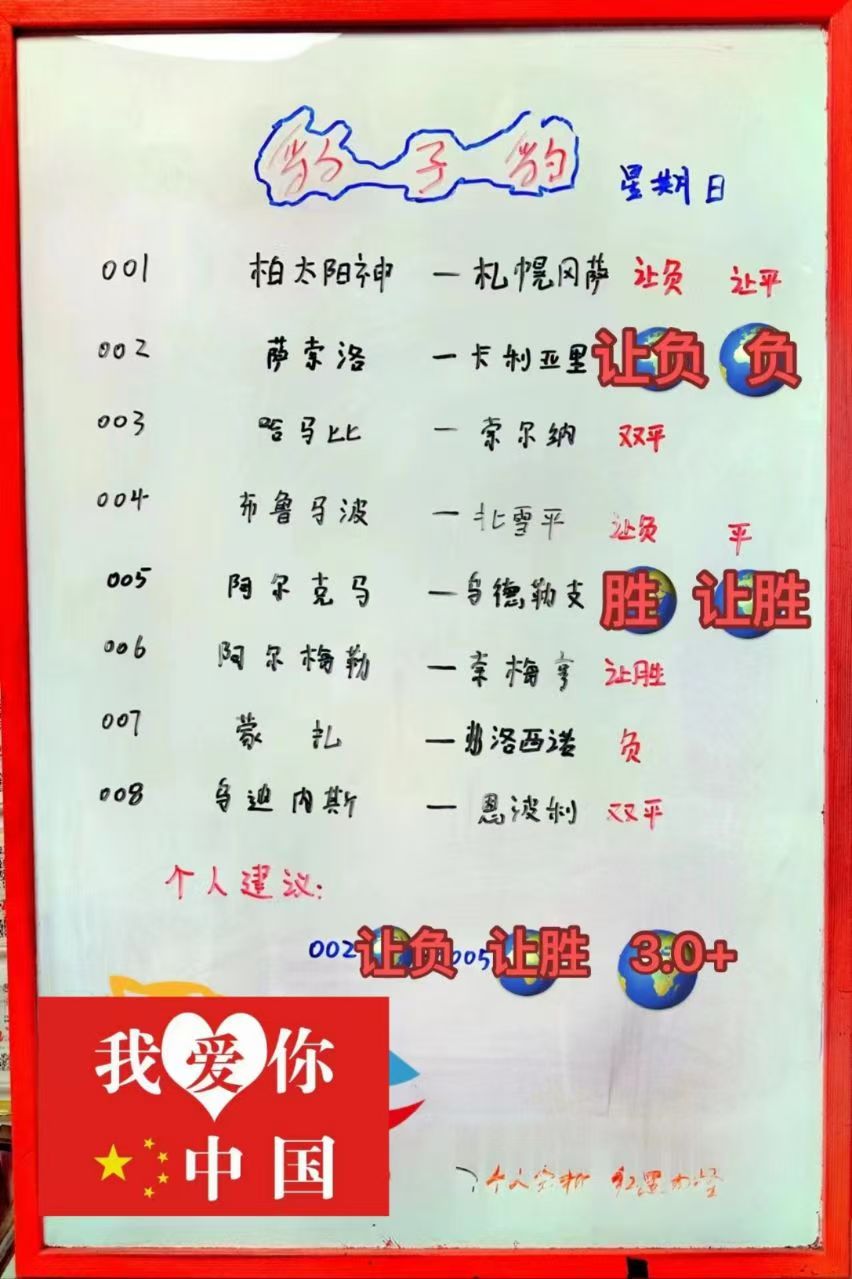 豹子豹
星期日
001 柏太阳神 — 札幌冈萨 让负 让平
002 萨索洛 — 卡利亚里 让负 负
003 哈马比 — 索尔纳 双平
004 布鲁马波 — 北雪平 让负 平
005 阿尔克马 — 乌德勒支 胜 让胜
006 阿尔梅勒 — 奈梅亨 让胜
007 蒙扎 — 弗洛西诺 负
008 乌迪内斯 — 恩波利 双平
个人建议:
002 让负 005 让胜 3.0+
我爱你
中国
个人分析 红黑勿怪